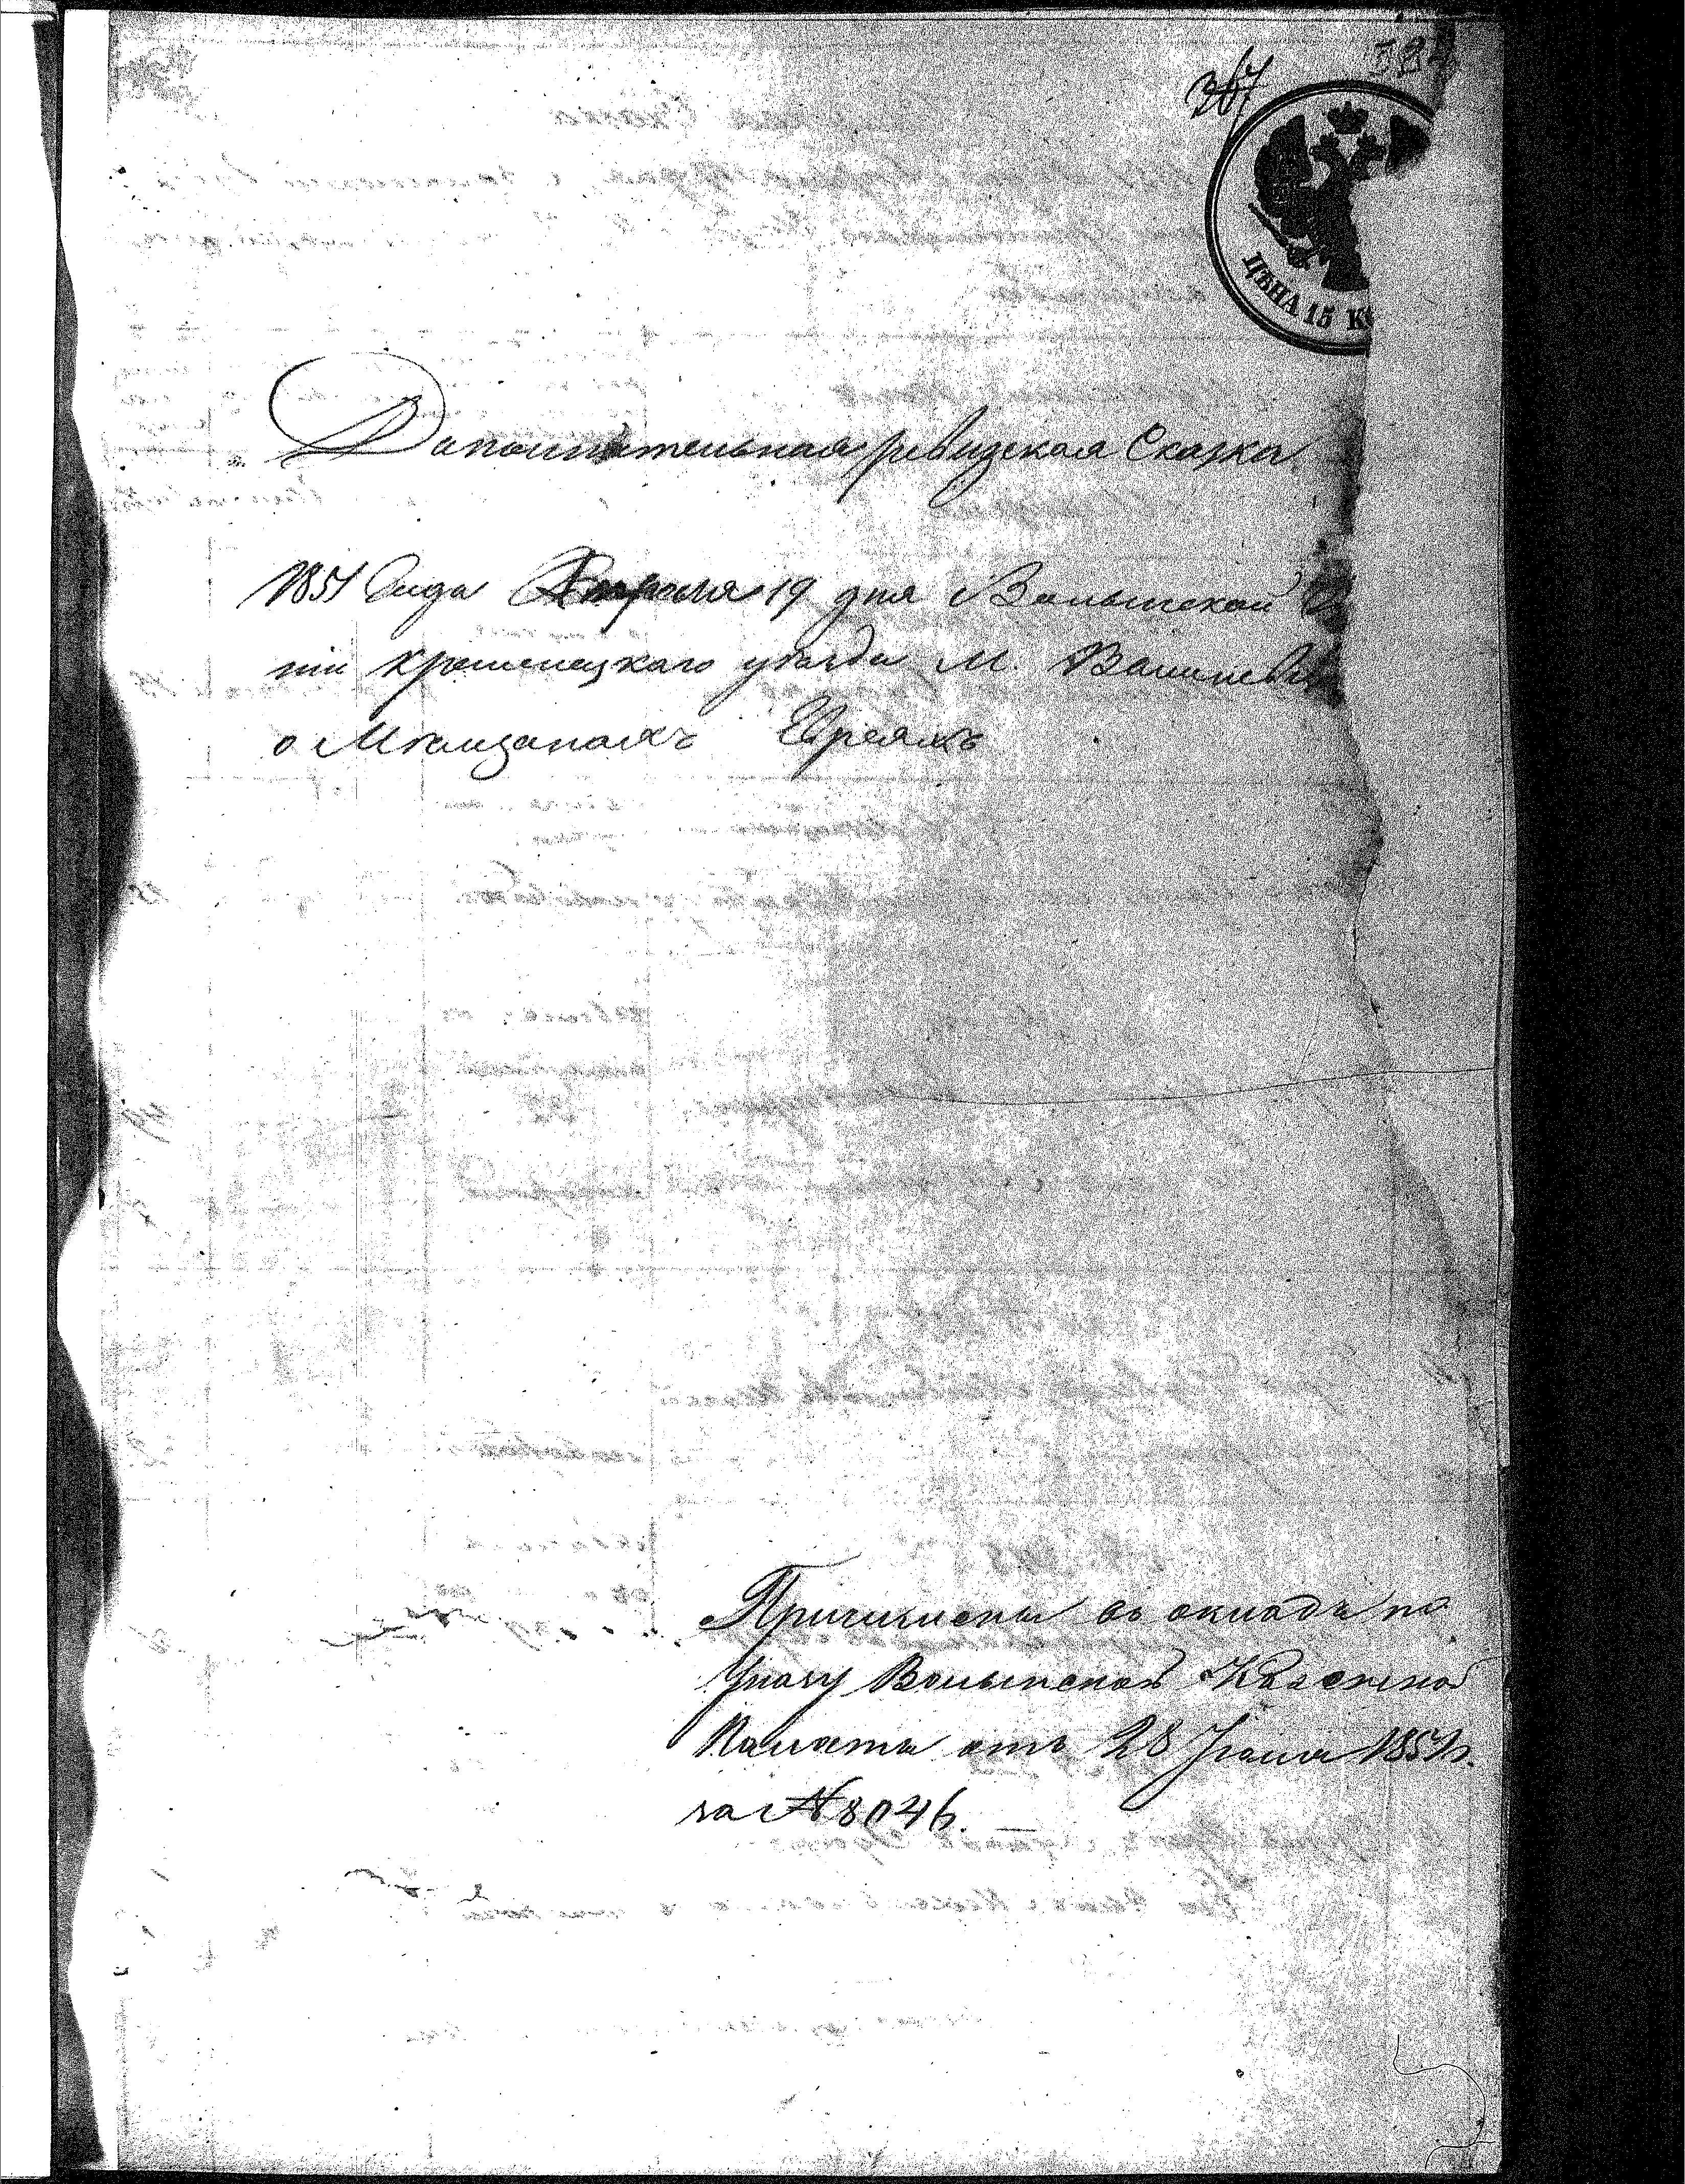 367
ЦѢНА 15 К
Дополнительная ревизская Сказка
1851 Года Апреля 19 дня Волынской
нiи кременецкаго уѣзда М.
о Мѣщанахъ Евреяхъ
Причислены въ окладъ по
Указу Волынской Казенной
Палаты отъ 28 Iюля 1851 г.
за № 8046.